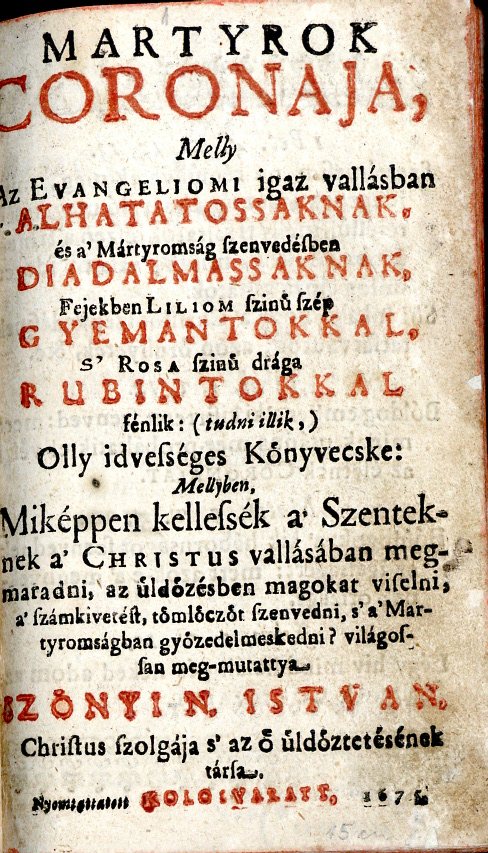 MARTYROK
CORONAJA,
Melly
Az EVANGELIOMI igaz vallásban
ALHATATOSSAKNAK,
és a' Mártyromság ſzenvedésben
DIADALMASSAKNAK,
Fejekben LILIOM ſzinû ſzép
GYEMANTOKKAL,
S' ROSA ſzinû drága
RUBINTOKKAL
fénlik: (tudni illik,)
Olly idveſséges Kőnyvecske:
Mellyben,
Miképpen kelleſsék a' Szentek-
nek a' CHRISTUS vallásában meg-
maradni, az űldőzésben magokat viſelni,
a' ſzámkivetéſt, tőmlőczőt ſzenvedni, s' a' Mar-
tyromságban győzedelmeskedni? világoſ-
ſan meg-mutattya
SZŐNYI N. ISTVAN,
Chriſtus ſzolgája s' az ő űldőztetésének
társa.
Nyomtattatott KOLOSVARATT, 1675.
15 cm